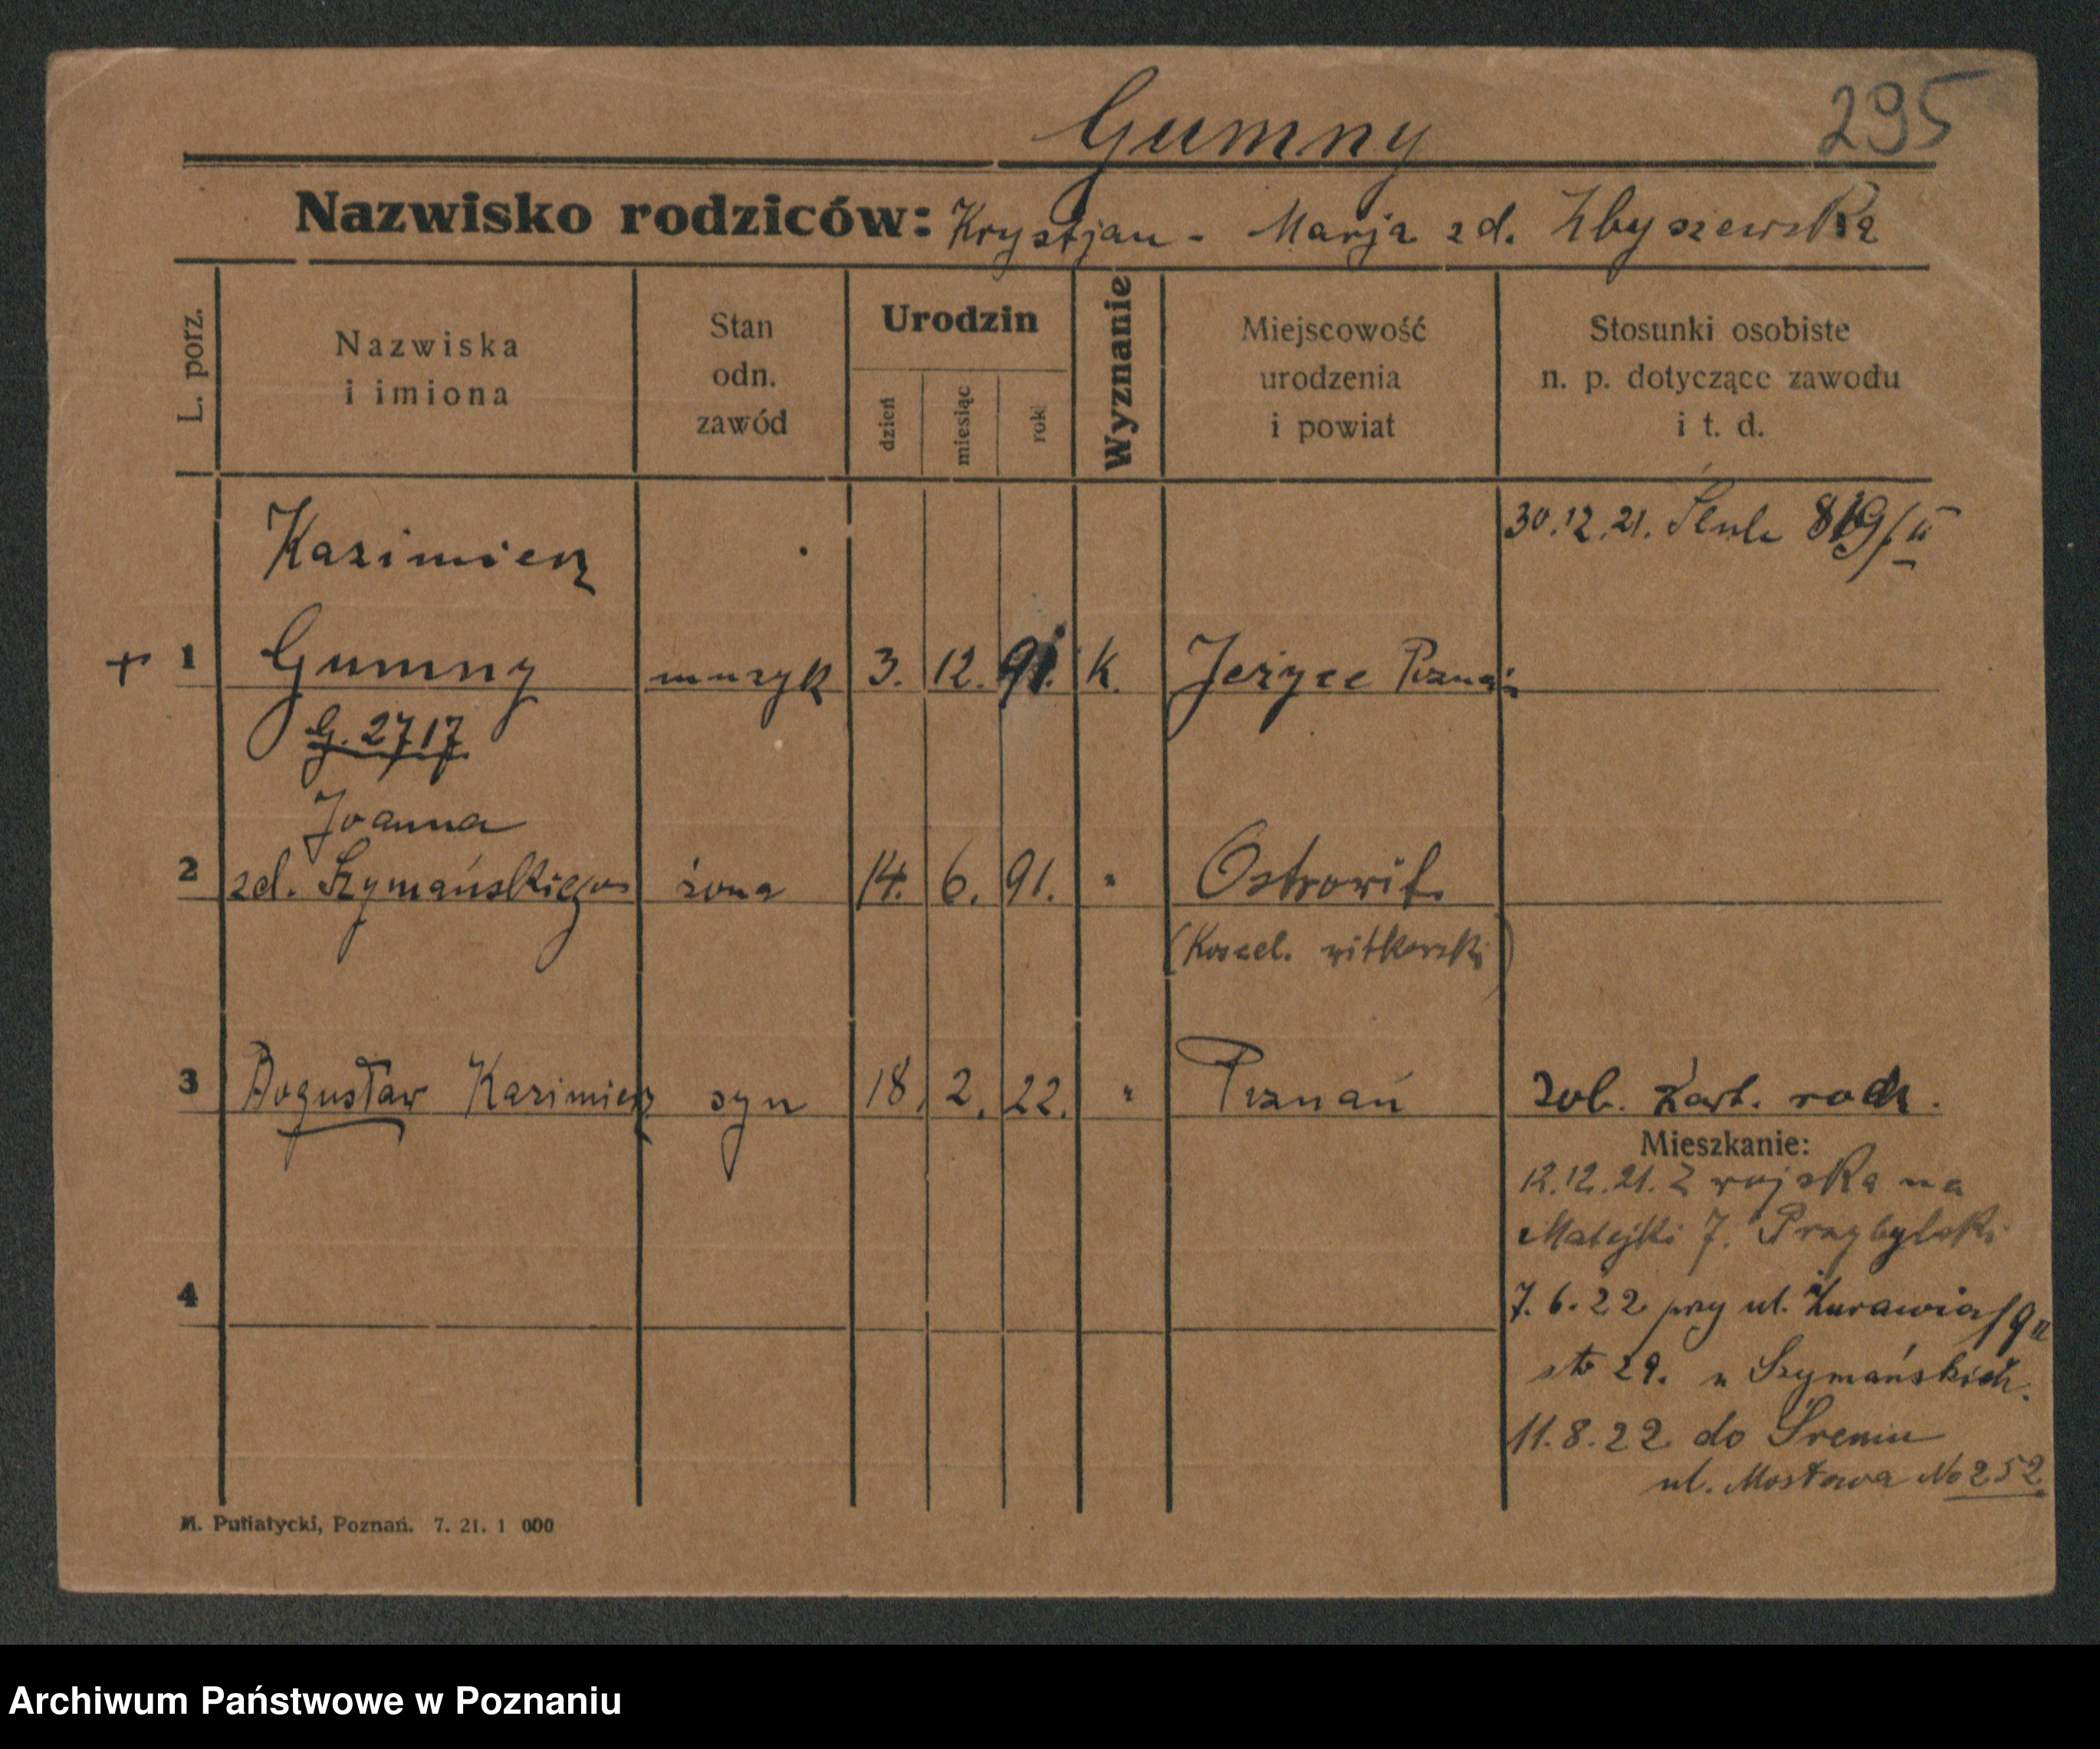 295
Gumny
Nazwisko rodziców: Krystjan - Marja zd. Zbyszewska
L. porz.
Nazwiska
i imiona
Stan
odn.
zawód
Urodzin
dzień
miesiąc
rok
Wyznanie
Miejscowość
urodzenia
i powiat
Stosunki osobiste
n. p. dotyczące zawodu
i t. d.
30.12.21.
Kazimierz
+ 1 Gumny muzyk 3. 12. 91. K. Jeżyce Poznań
G. 2717
Joanna
2 zd. Szymańskiego żona 14. 6. 91. " Ostrowit.
(Koscel. witkowski)
3 Bogusław Kazimierz syn 18. 2. 22. " Poznań zob. kart. rodz.
Mieszkanie:
12.12.21. Z wojska na
Matejki 7. Przybylski
4
7.6.22 przy ul. Żurawia/9 II
str 29. u Szymańskich.
11.8.22 do Śremu
ul. Mostowa No 252
M. Putiatycki, Poznań. 7. 21. 1 000
Archiwum Państwowe w Poznaniu